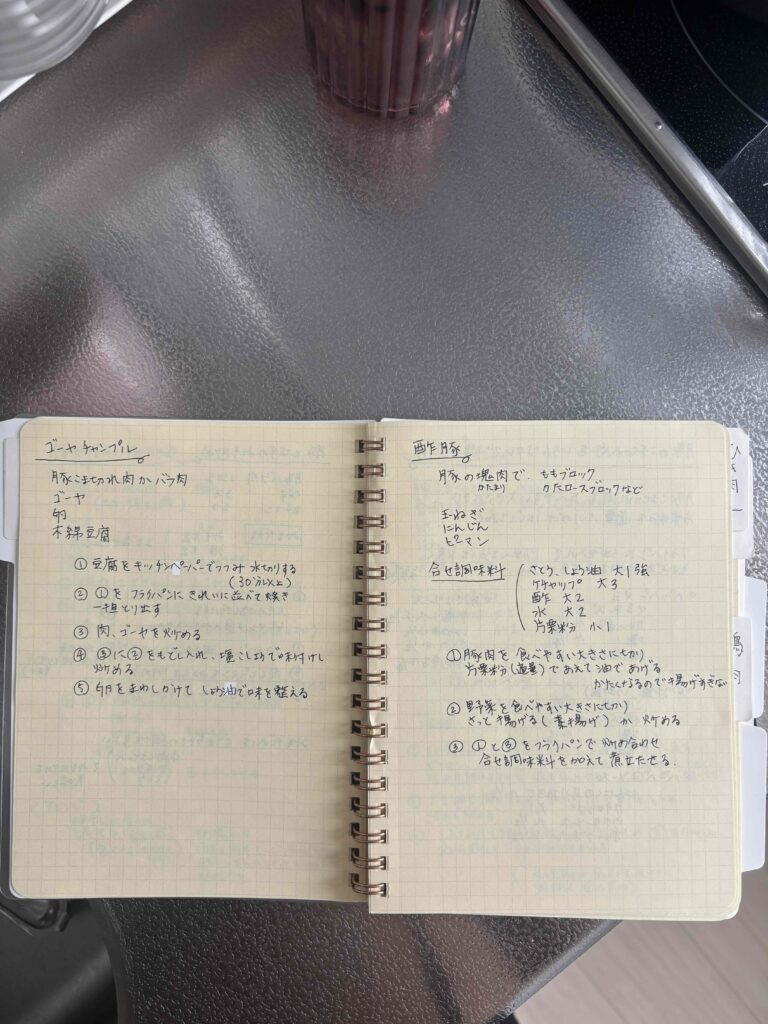 ゴーヤチャンプル
豚こまぎれ肉かバラ肉
ゴーヤ
卵
木綿豆腐
① 豆腐をキッチンペーパーでつつみ 水切りする
(30分以上)
② ①を フライパンに きれいに並べて焼き
一担とり出す
③ 肉、ゴーヤを炒める
④ ③に②をもどし入れ、塩こしょうで味付けし
炒める
⑤ 卵をまわしかけて しょう油で味を整える
酢豚
豚の塊肉で、ももブロック
かたまり かたロースブロックなど
玉ねぎ
にんじん
ピーマン
合せ調味料
さとう、しょう油 大1強
ケチャップ 大3
酢 大2
水 大2
片栗粉 小1
① 豚肉を 食べやすい大きさに切り
片栗粉(適量)であえて油であげる
かたくなるので揚げすぎない
② 野菜を食べやすい大きさに切り
さっと揚げる(素揚げ) か 炒める
③ ①と②をフライパンで 炒め合わせ
合せ調味料を加えて 煮立たせる.
ひき肉
鶏肉